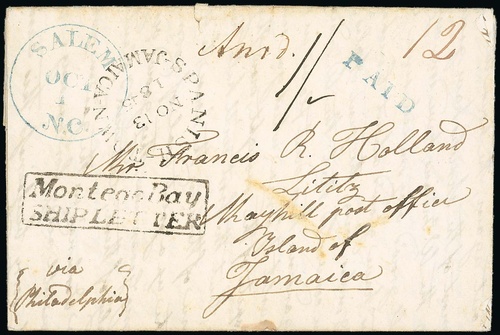 SALEM
OCT
1
N.C.
SPANISH TOWN
JAMAICA
NO 13
184
Ansd.
1/
PAID
12
Mr. Francis R. Holland
Lititz
Mayhill post office
Island of
Jamaica
Montego Bay
SHIP LETTER
via
Philadelphia